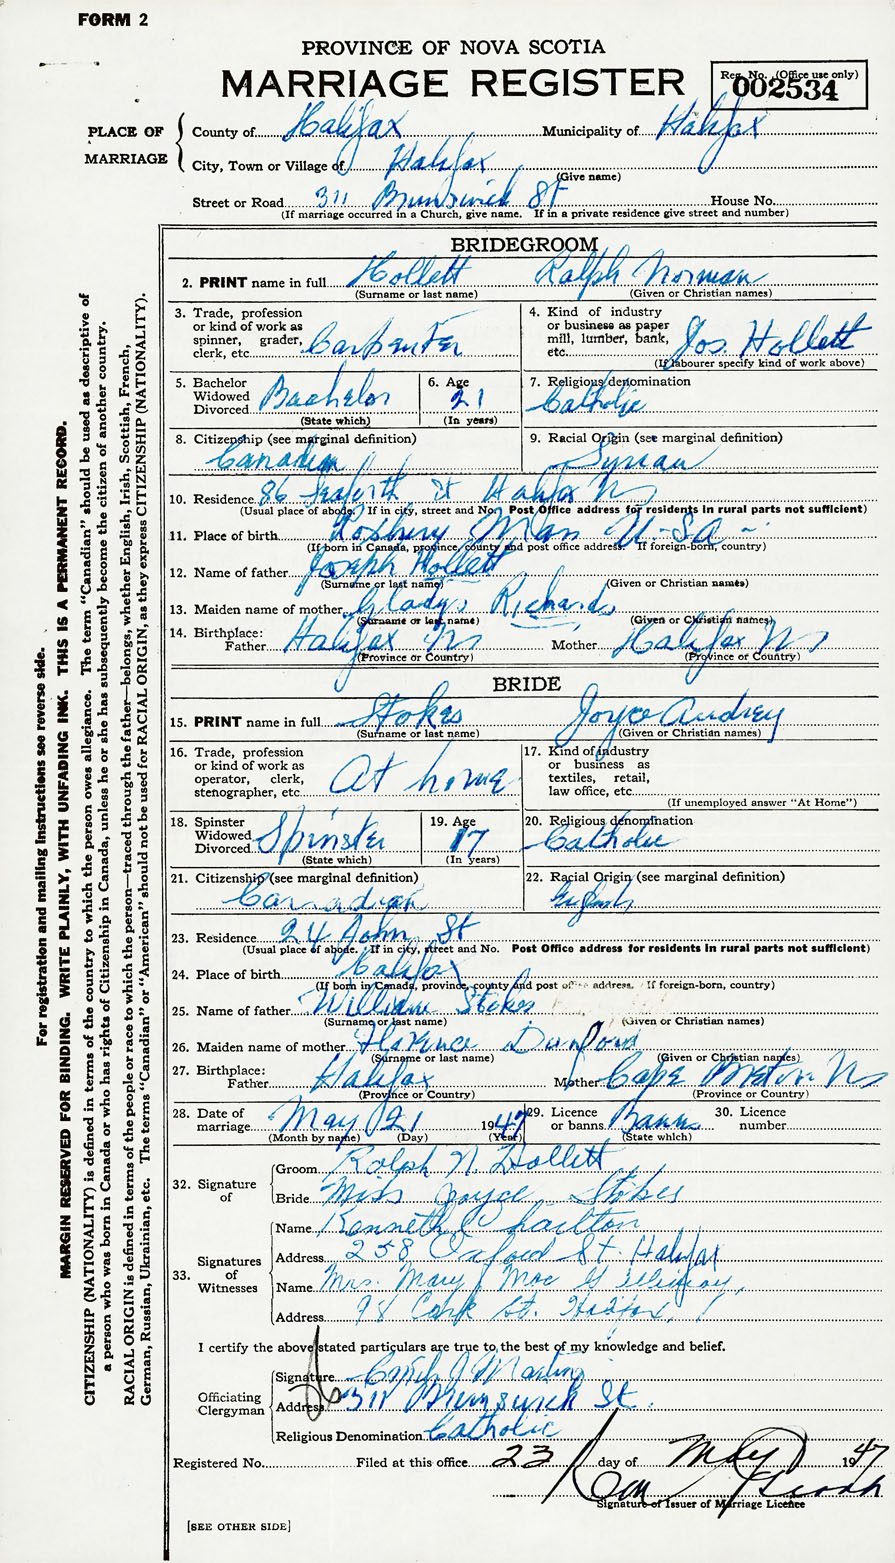 FORM 2
PROVINCE OF NOVA SCOTIA
MARRIAGE REGISTER
Reg. No. (Office use only)
002534
PLACE OF MARRIAGE
County of Halifax Municipality of Halifax
City, Town or Village of Halifax
(Give name)
Street or Road 311 Brunswick St House No.
(If marriage occurred in a Church, give name. If in a private residence give street and number)
BRIDEGROOM
2. PRINT name in full Hollett Ralph Norman
(Surname or last name) (Given or Christian names)
3. Trade, profession or kind of work as spinner, grader, clerk, etc. Carpenter
4. Kind of industry or business as paper mill, lumber, bank, etc. Jos. Hollett
(If labourer specify kind of work above)
5. Bachelor Widowed Divorced Bachelor
(State which)
6. Age 21
(In years)
7. Religious denomination
Catholic
8. Citizenship (see marginal definition)
Canadian
9. Racial Origin (see marginal definition)
Syrian
10. Residence 86 Seaforth St Halifax NS
(Usual place of abode. If in city, street and No. Post Office address for residents in rural parts not sufficient)
11. Place of birth Roxbury Mass U-SA
(If born in Canada, province, county and post office address. If foreign-born, country)
12. Name of father Joseph Hollett
(Surname or last name) (Given or Christian names)
13. Maiden name of mother Gladys Richards
(Surname or last name) (Given or Christian names)
14. Birthplace:
Father Halifax NS Mother Halifax NS
(Province or Country) (Province or Country)
BRIDE
15. PRINT name in full Stokes Joyce Audrey
(Surname or last name) (Given or Christian names)
16. Trade, profession or kind of work as operator, clerk, stenographer, etc. At home
17. Kind of industry or business as textiles, retail, law office, etc.
(If unemployed answer "At Home")
18. Spinster Widowed Divorced Spinster
(State which)
19. Age 17
(In years)
20. Religious denomination
Catholic
21. Citizenship (see marginal definition)
Canadian
22. Racial Origin (see marginal definition)
English
23. Residence 24 John St
(Usual place of abode. If in city, street and No. Post Office address for residents in rural parts not sufficient)
24. Place of birth Halifax
(If born in Canada, province, county and post office address. If foreign-born, country)
25. Name of father William Stokes
(Surname or last name) (Given or Christian names)
26. Maiden name of mother Florence
(Surname or last name) (Given or Christian names)
27. Birthplace:
Father Halifax Mother Cape Breton NS
(Province or Country) (Province or Country)
28. Date of marriage May 21 1947
(Month by name) (Day) (Year)
29. Licence or banns Banns
(State which)
30. Licence number
32. Signature of
Groom Ralph N Hollett
Bride Miss Joyce Stokes
33. Signatures of Witnesses
Name Kenneth Charlton
Address 258 Oxford St. Halifax
Name Mrs. Mary J Mac Gillivray,
Address 98 Cork St. Halifax,
I certify the above stated particulars are true to the best of my knowledge and belief.
Officiating Clergyman
Signature J Martin
Address 311 Brunswick St.
Religious Denomination Catholic
Registered No. Filed at this office 23 day of May 1947
Signature of Issuer of Marriage Licence
[SEE OTHER SIDE]
For registration and mailing instructions see reverse side.
MARGIN RESERVED FOR BINDING. WRITE PLAINLY, WITH UNFADING INK. THIS IS A PERMANENT RECORD.
CITIZENSHIP (NATIONALITY) is defined in terms of the country to which the person owes allegiance. The term "Canadian" should be used as descriptive of
a person who was born in Canada or who has rights of Citizenship in Canada, unless he or she has subsequently become the citizen of another country.
RACIAL ORIGIN is defined in terms of the people or race to which the person—traced through the father—belongs, whether English, Irish, Scottish, French,
German, Russian, Ukrainian, etc. The terms "Canadian" or "American" should not be used for RACIAL ORIGIN, as they express CITIZENSHIP (NATIONALITY).